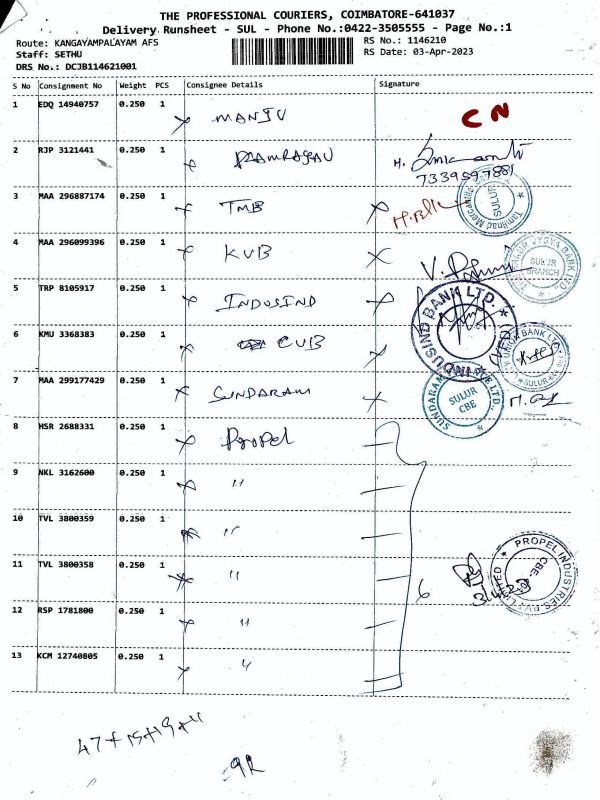 THE PROFESSIONAL COURIERS, COIMBATORE-641037
Delivery Runsheet - SUL - Phone No.:0422-3505555 - Page No.:1
Route: KANGAYAMPALAYAM AFS
Staff: SETHU
DRS No.: DCJB114621001
RS No.: 1146210
RS Date: 03-Apr-2023
S No Consignment No Weight PCS Consignee Details Signature
1 EDQ 14940757 0.250 1 MANJU CN
2 RJP 3121441 0.250 1
7339597881
3 MAA 296887174 0.250 1 TMB
SULUR
4 MAA 296099396 0.250 1 KVB
SULUR BRANCH
5 TRP 8105917 0.250 1 INDUSIND
INDUSIND BANK LTD.
6 KMU 3368383 0.250 1 CUB
SULUR
7 MAA 299177429 0.250 1 SUNDARAM
SULUR CBE
8 HSR 2688331 0.250 1 Propel
9 NKL 3162600 0.250 1 "
10 TVL 3800359 0.250 1 "
11 TVL 3800358 0.250 1 " 6
PROPEL INDUSTRIES PVT LIMITED
12 RSP 1781800 0.250 1 "
13 KCM 12740805 0.250 1 "
47+15+19+11
92